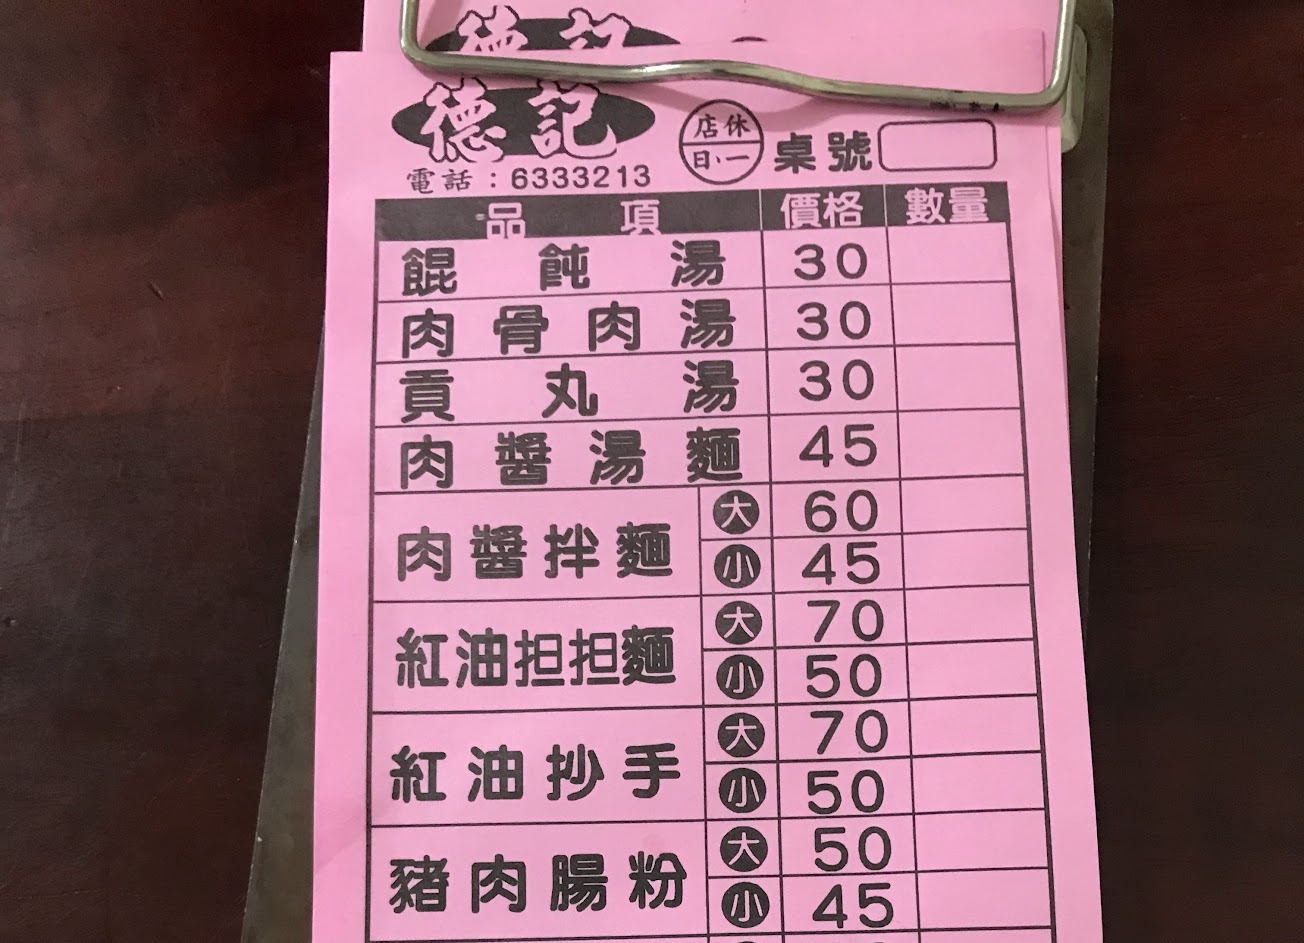 德記
德記
店休
日、一
桌號
電話：6333213
品項 價格 數量
餛飩湯 30
肉骨肉湯 30
貢丸湯 30
肉醬湯麵 45
肉醬拌麵 大 60
小 45
紅油担担麵 大 70
小 50
紅油抄手 大 70
小 50
豬肉腸粉 大 50
小 45